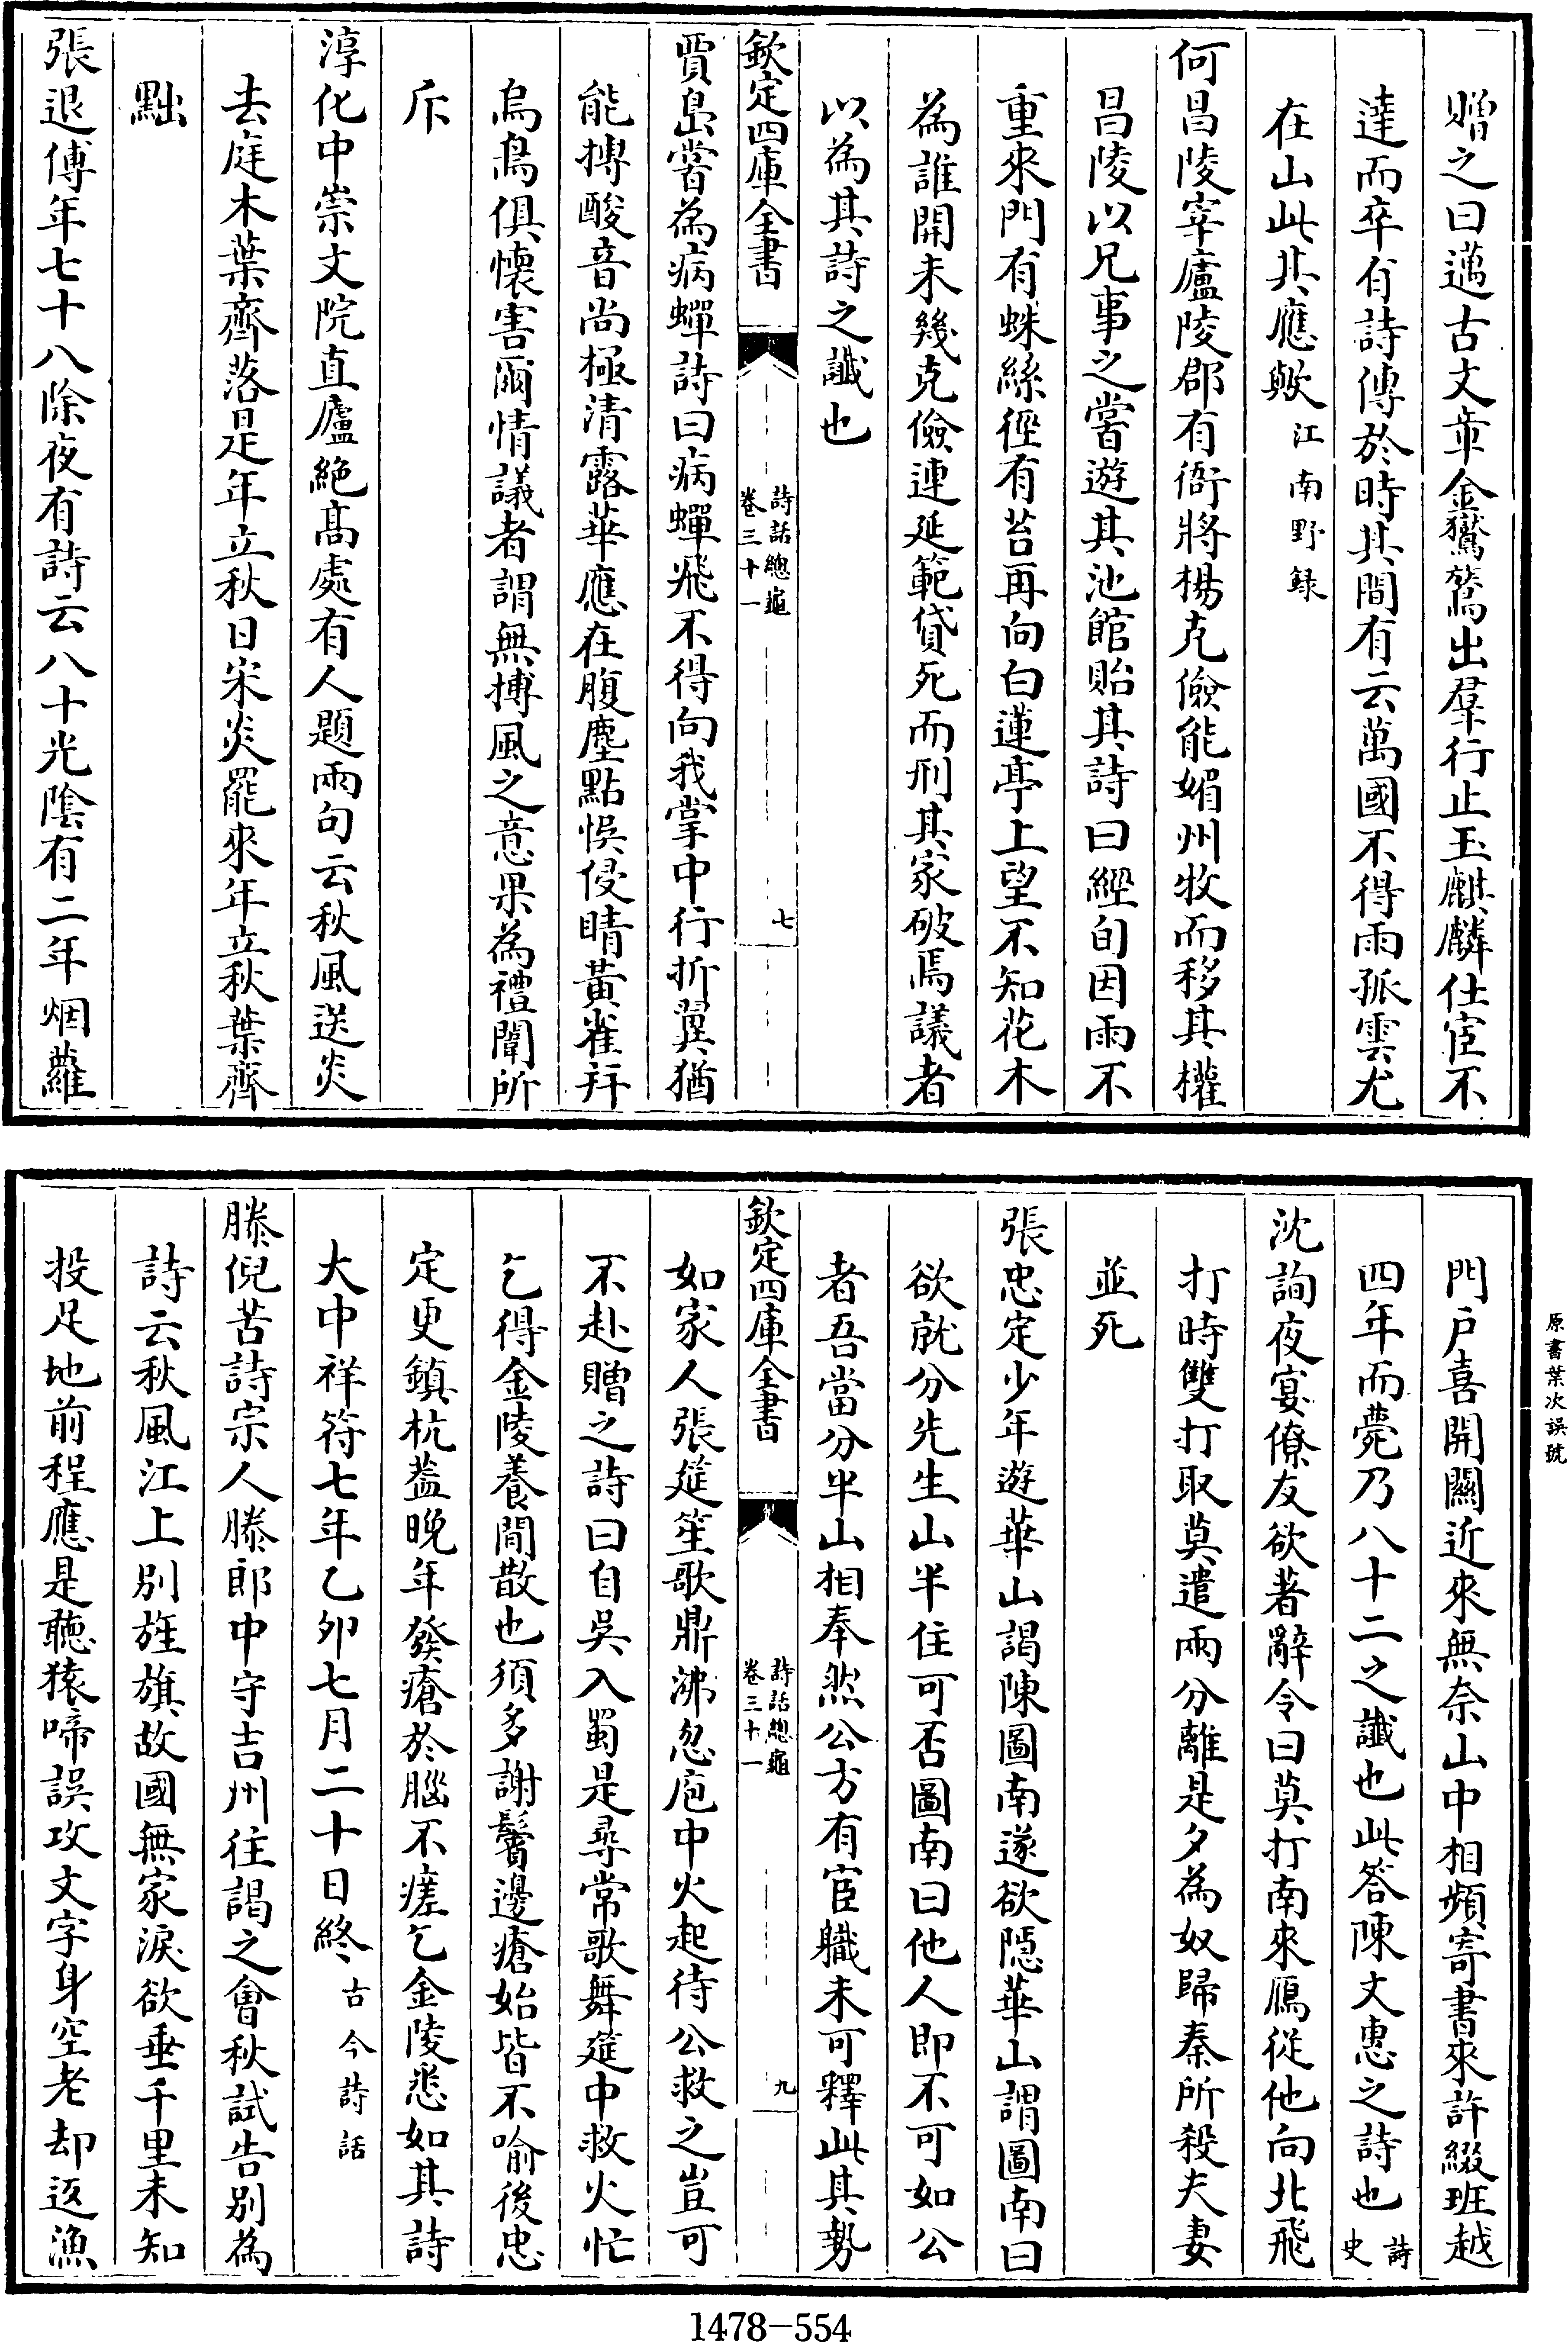 贈之曰邁古文章金鸑鷟出羣行止玉麒麟仕宦不
達而卒有詩傳於時其間有云萬國不得雨孤雲尤
在山此其應歟江南野録
何昌陵宰廬陵郡有衙將楊克儉能媚州牧而移其權
昌陵以兄事之嘗遊其池館貽其詩曰經旬因雨不
重來門有蛛絲徑有苔再向白蓮亭上望不知花木
為誰開未幾克儉連延範貸死而刑其家破焉議者
以為其詩之讖也
欽定四庫全書
詩話總龜
卷三十一
七
賈島嘗為病蟬詩曰病蟬飛不得向我掌中行折翼猶
能搏酸音尚極清露華應在腹塵點悞侵睛黃雀并
烏鳥俱懷害爾情議者謂無搏風之意果為禮闈所
斥
淳化中崇文院直廬絶髙處有人題兩句云秋風送炎
去庭木葉齊落是年立秋日宋炎罷來年立秋葉齊
黜
張退傅年七十八除夜有詩云八十光陰有二年烟蘿
門戶喜開關近來無奈山中相頻寄書來許綴班越
四年而薨乃八十二之讖也此答陳文惠之詩也詩史
沈詢夜宴僚友欲著辭令曰莫打南來鴈從他向北飛
打時雙打取莫遣兩分離是夕為奴歸秦所殺夫妻
並死
張忠定少年遊華山謁陳圖南遂欲隠華山謂圖南曰
欲就分先生山半住可否圖南曰他人即不可如公
者吾當分半山相奉然公方有宦職未可釋此其勢
欽定四庫全書
詩話總龜
卷三十一
九
如家人張筵笙歌鼎沸忽庖中火起待公救之豈可
不赴贈之詩曰自吳入蜀是尋常歌舞筵中救火忙
乞得金陵養閒散也須多謝鬢邊瘡始皆不喻後忠
定更鎮杭益晚年發瘡於腦不瘥乞金陵悉如其詩
大中祥符七年乙卯七月二十日終古今詩話
滕倪苦詩宗人滕郎中守吉州往謁之會秋試告别為
詩云秋風江上别旌旗故國無家淚欲垂千里未知
投足地前程應是聽猿啼誤攻文字身空老却返漁
原書葉次誤號
1478-554